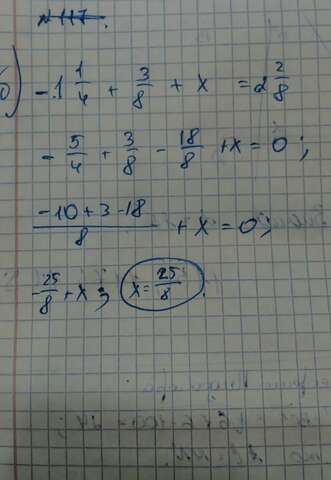 № 117.
б) -1 1/4 + 3/8 + x = 2 2/8
- 5/4 + 3/8 - 18/8 + x = 0;
(-10 + 3 - 18)/8 + x = 0;
-25/8 + x; x = 25/8.